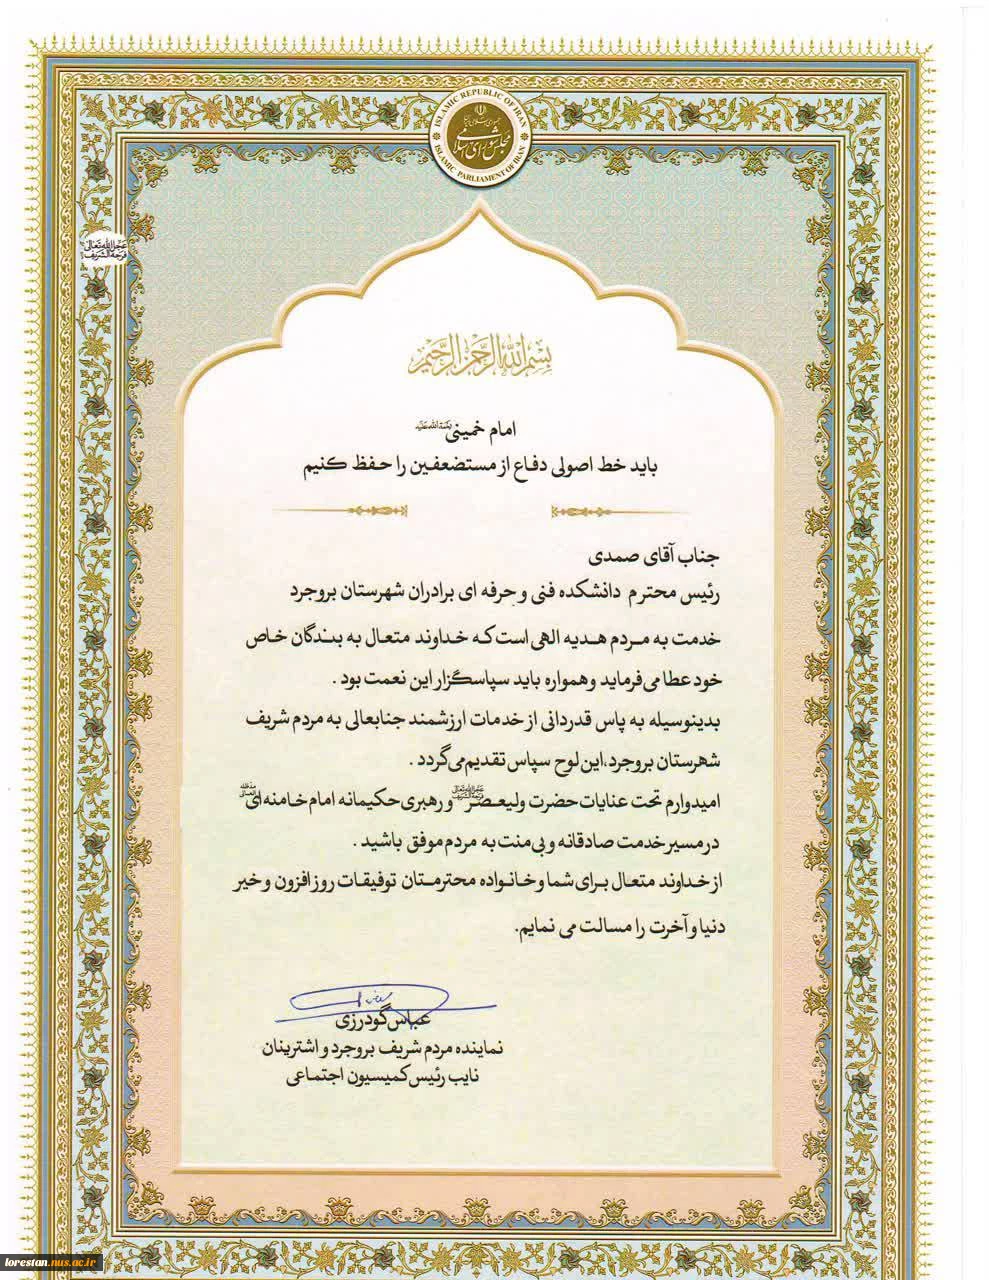 ISLAMIC REPUBLIC OF IRAN
مجلس شورای اسلامی
ISLAMIC PARLIAMENT OF IRAN
عجل الله تعالی
فرجه الشریف
بسم الله الرحمن الرحیم
امام خمینی رحمة الله علیه
باید خط اصولی دفاع از مستضعفین را حفظ کنیم
جناب آقای صمدی
رئیس محترم دانشکده فنی و حرفه ای برادران شهرستان بروجرد
خدمت به مردم هدیه الهی است که خداوند متعال به بندگان خاص
خود عطا می فرماید و همواره باید سپاسگزار این نعمت بود .
بدینوسیله به پاس قدردانی از خدمات ارزشمند جنابعالی به مردم شریف
شهرستان بروجرد،این لوح سپاس تقدیم می گردد .
امیدوارم تحت عنایات حضرت ولیعصر عجل الله تعالی فرجه الشریف و رهبری حکیمانه امام خامنه ای مدظله العالی
در مسیر خدمت صادقانه و بی منت به مردم موفق باشید .
از خداوند متعال برای شما و خانواده محترمتان توفیقات روز افزون و خیر
دنیا و آخرت را مسالت می نمایم.
عباس گودرزی
نماینده مردم شریف بروجرد و اشترینان
نایب رئیس کمیسیون اجتماعی
lorestan.nus.ac.ir